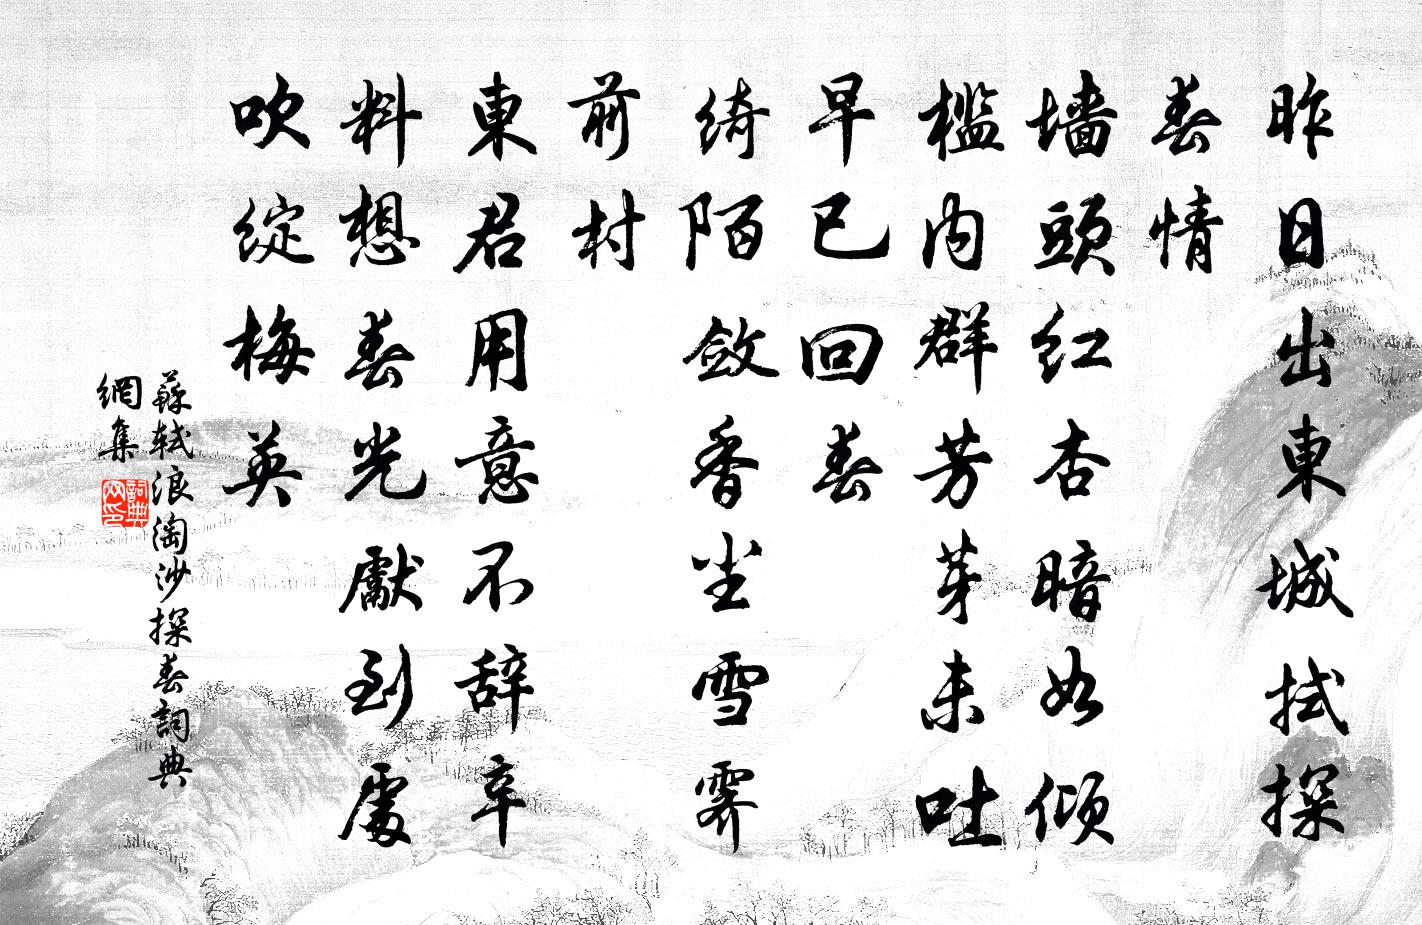 昨日出東城拭探
春情
墙頭红杏暗如倾
槛内群芳芽未吐
早已回春
绮陌斂香尘雪霽
前村
東君用意不辞辛
料想春光獻到處
吹绽梅英
蘇軾浪淘沙探春詞典
網集
詞典网印